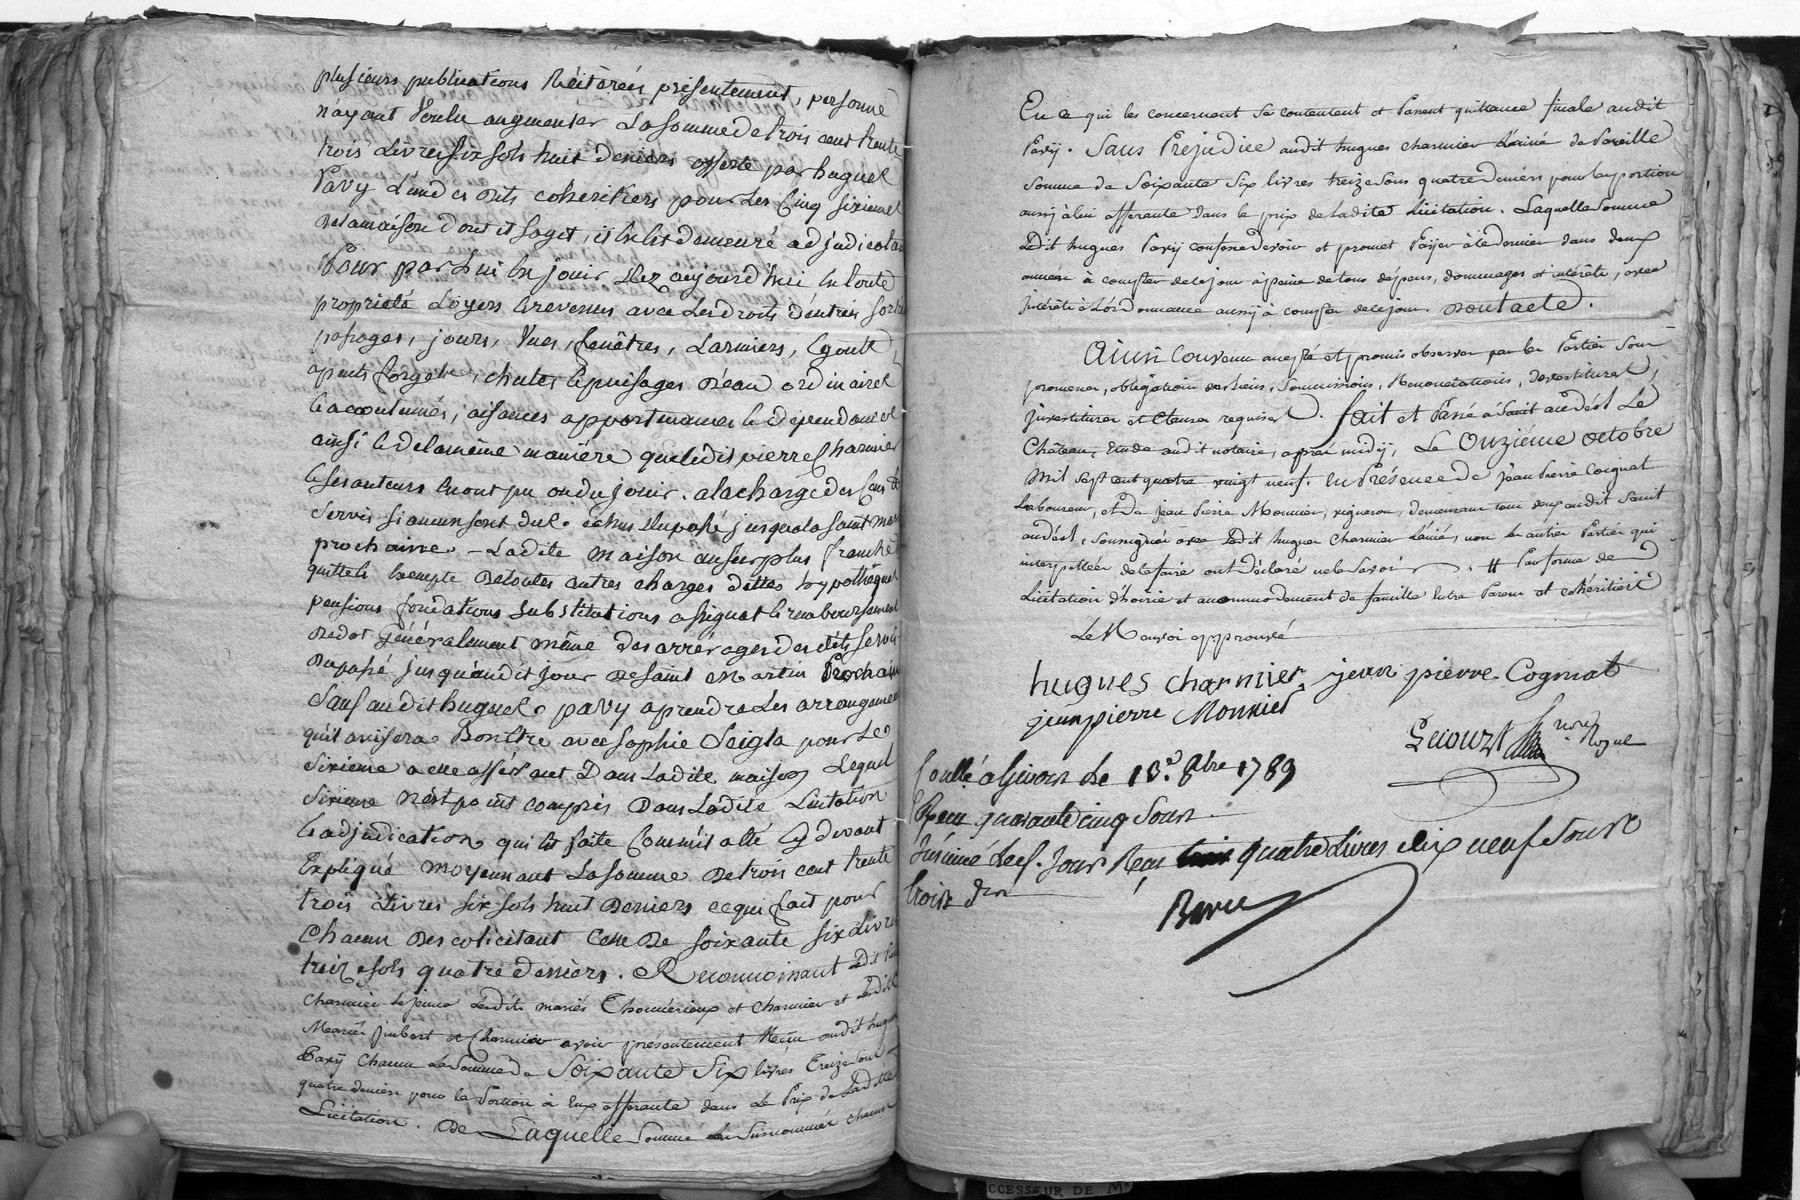 plusieurs publications Réitérées présentement, personne
n'ayant voulu augmenter La somme de trois cent trente
trois Livres six sols huit deniers offerte par hugues
Pavy L'un des dits coheritiers pour Les Cinq sixiemes
de la maison dont il sagit, il en est demeuré adjudicatai
Pour par Lui En jouir dez aujourd'hui En toute
propriété Loyers & revenus avec Les droits d'entrées sorti
passages, jours, Vues, fenêtres, Larmiers, Egouts
apents forgets, chutes & puisages d'eau ordinaires
& accoutumés, aisances appartenances & dépendances
ainsi & de la même manière que Ledit pierre Charmier
& ses auteurs En ont pu ou du jouir. a la charge des Cens &
Servis si aucuns sont dus. échus du passé jusqu'a la saint mar
prochaine - Ladite maison au surplus franche
quitte & Exempte de toutes autres charges dettes hypotheques
pensions fondations substitutions assignat & remboursement
de dot généralement même des arrérages des dits servis
du passé jusqu'audit jour de saint Martin Prochain
Sauf audit hugues pavy a prendre Les arrangemens
qu'il avisera Bon Etre avec Sophie Saigla pour Le
Sixieme a elle afférant Dans Ladite maison Lequel
Sixieme n'est point compris Dans Ladite Licitation
& adjudication qui Est faite Comm'il a été Cy devant
Expliqué moyennant La somme de trois cent trente
trois Livres six sols huit Deniers ce qui fait pour
Chacun des colicitant Celle De soixante six Livres
treize sols quatre deniers. Reconnoissant Ledit hu
Charmier Le jeune Lesdits mariés Thomérieux et Charmier et Lesdits
Mariés jmbert et Charmier avoir présentement Reçu audit hugues
Pavy Chacun La Somme de Soixante Six livres Treize Sous
quatre deniers pour La Portion à Eux afferante dans Le Prix de Ladite
Licitation. De Laquelle Somme Les Surnommés chacun
En ce qui les concernant se contentent et Passent quittance finale audit
Pavy. Sans Préjudice audit hugues charmier L'ainé de Pareille
Somme de Soixante Six livres treize Sous quatre deniers pour la portion
aussy à lui afferante dans le prix de Ladite Licitation. Laquelle Somme
Ledit hugues Pavy confesse devoir et promet Payer à ce dernier dans deux
années à compter de ce jour à peine de tous dépens, dommages et intérêts, avec
Intérêts à L'ordonnance aussy à compter de ce jour. Dont acte.
Ainsi Convenu accepté et promis observer par les Parties sous
promesses, obligation des Biens, Soumissions, Renonciations, devestitures,
Investitures et Clauses requises. fait et Passé à Saint andéol Le
Château, Etude audit notaire, après midy, Le Onzième octobre
Mil Sept cent quatre vingt neuf. En Présence de Jean Pierre Cognat
Laboureur, et de Jean Pierre Monnier, vigneron, demeurans tous deux audit Saint
andéol, Soussignés avec Ledit hugues Charmier L'ainé, non les autres Parties qui
interpellées de le faire ont déclaré ne le Savoir. # Par forme de
Licitation d'hoirie et accommodement de famille Entre Parens et cohéritiers
Le Renvoi approuvé
hugues charmier jean pierre Cognat
jean pierre Monnier
not. Royal
Conllé a Givors Le 13e 8bre 1789
Reçu quarante cinq Sous
Insinué led. Jour Reçu quatre Livres dix neuf Sous
trois drs